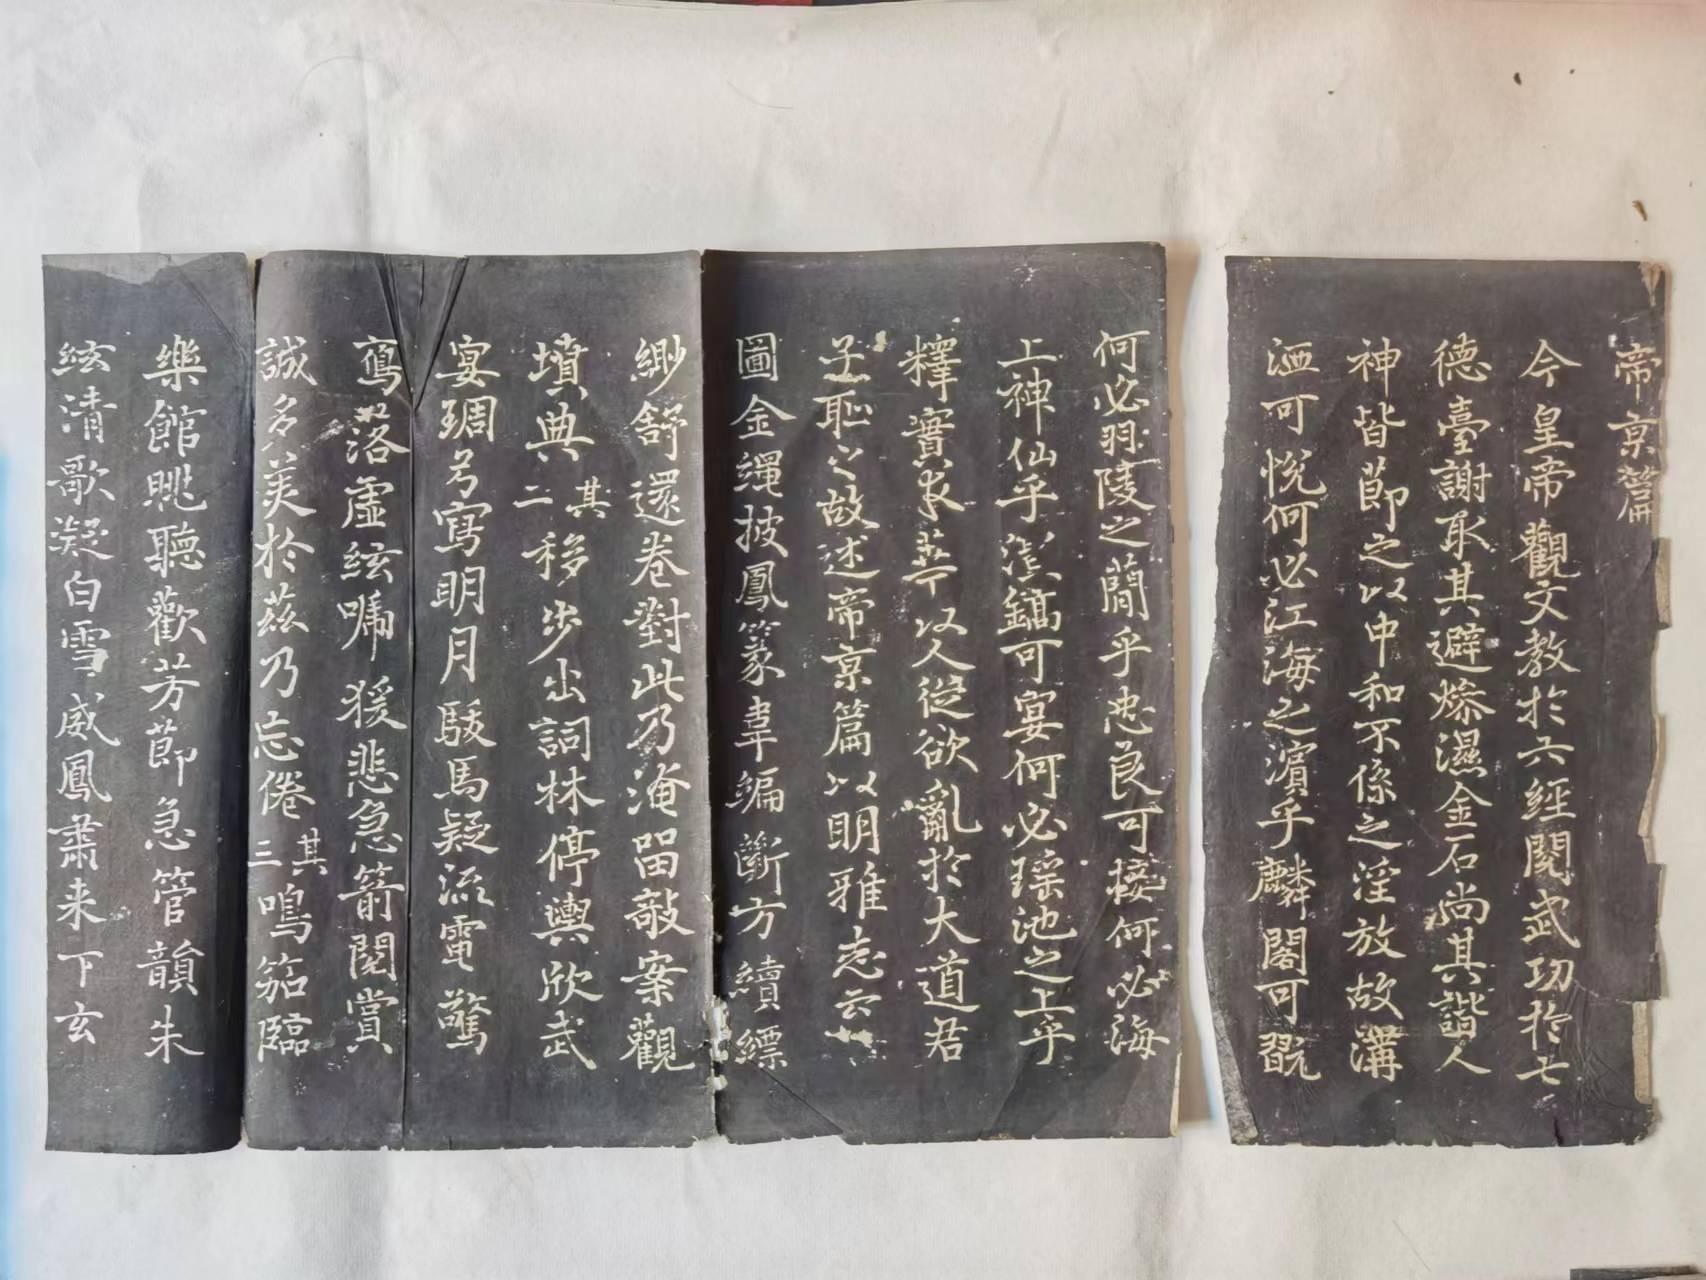 帝京篇
今皇帝觀文教於六經閱武功於七
德臺謝取其避燥濕金石尚其諧人
神皆節之以中和不係之淫放故溝
洫可悅何必江海之濱乎麟閣可翫
何必羽陵之蕳乎忠良可接何必海
上神仙乎灃鎬可宴何必瑶池之上乎
釋實求華以人從欲亂於大道君
子恥之故述帝京篇以明雅志云
圖金繩披鳳篆韋編斷方續縹
緲舒還卷對此乃淹留敧案觀
墳典其二移步出詞林停輿欣武
宴琱弓寫明月駿馬疑流電驚
鴈落虛絃嘶猨悲急箭閱賞
誠多美於茲乃忘倦其三鳴笳臨
樂館眺聽歡芳節急管韻朱
絃清歌凝白雪威鳳肅来下玄